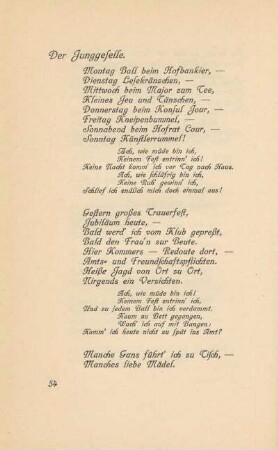 Der Junggeselle.
Montag Ball beim Hofbankier, —
Dienstag Lesekränzchen, —
Mittwoch beim Major zum Tee,
Kleines Jeu und Tänzchen, —
Donnerstag beim Konsul Jour, —
Freitag Kneipenbummel, —
Sonnabend beim Hofrat Cour, —
Sonntag Künstlerrummel!
Ach, wie müde bin ich!
Keinem Fest entrinn' ich!
Keine Nacht komm' ich vor Tag nach Haus.
Ach, wie schläfrig bin ich,
Keine Ruh' gewinn' ich,
Schlief ich endlich mich doch einmal aus!
Gestern großes Trauerfest,
Jubiläum heute, —
Bald werd' ich vom Klub gepreßt,
Bald den Frau'n zur Beute.
Hier Kommers — Redoute dort, —
Amts- und Freundschaftspflichten.
Heiße Jagd von Ort zu Ort,
Nirgends ein Verzichten.
Ach, wie müde bin ich!
Keinem Fest entrinn' ich,
Und zu jedem Ball bin ich verdammt.
Kaum zu Bett gegangen,
Wach' ich auf mit Bangen:
Komm' ich heute nicht zu spät ins Amt?
Manche Gans führt' ich zu Tisch, —
Manches liebe Mädel.
54